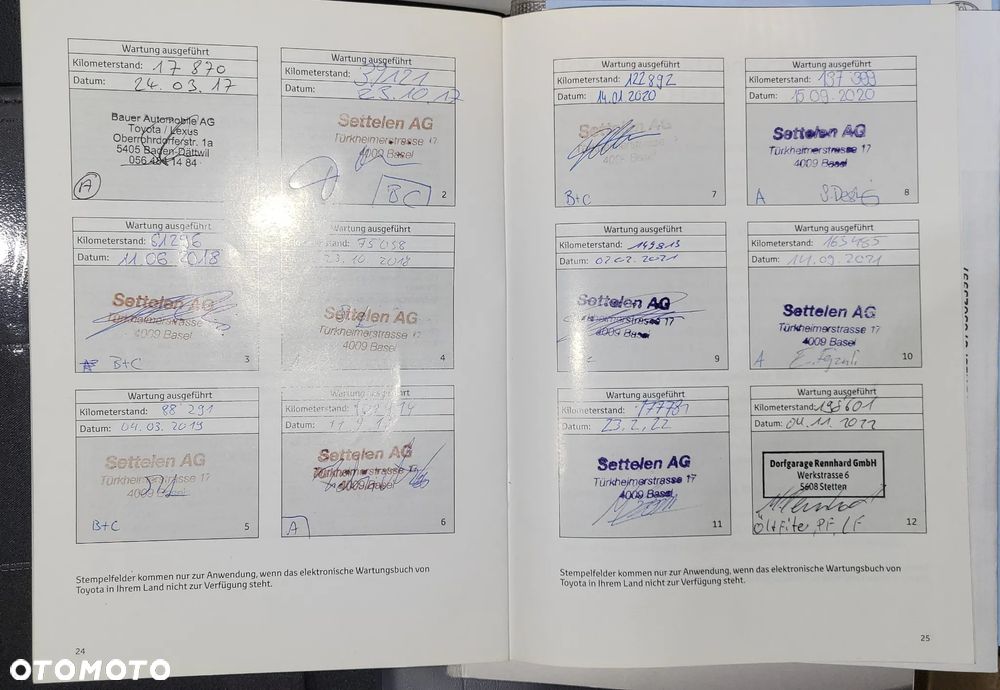 Wartung ausgeführt
Kilometerstand: 17 870
Datum: 24.03.17
Bauer Automobile AG
Toyota / Lexus
Oberrohrdorferstr. 1a
5405 Baden-Dättwil
056 484 14 84
A
Wartung ausgeführt
Kilometerstand: 39121
Datum: 23.10.17
Settelen AG
Türkheimerstrasse 17
4009 Basel
BC
2
Wartung ausgeführt
Kilometerstand: 61296
Datum: 11.06.2018
Settelen AG
Türkheimerstrasse 17
4009 Basel
B+C
3
Wartung ausgeführt
Kilometerstand: 75098
23.10.2018
Settelen AG
Türkheimerstrasse 17
4009 Basel
A
4
Wartung ausgeführt
Kilometerstand: 88 291
Datum: 04.03.2019
Settelen AG
Türkheimerstrasse 17
4009 Basel
B+C
5
Wartung ausgeführt
Kilometerstand:
Datum:
Settelen AG
Türkheimerstrasse 17
4009 Basel
A
6
Stempelfelder kommen nur zur Anwendung, wenn das elektronische Wartungsbuch von
Toyota in Ihrem Land nicht zur Verfügung steht.
24
Wartung ausgeführt
Kilometerstand: 122892
Datum: 14.01.2020
Settelen AG
Türkheimerstrasse 17
4009 Basel
B+C
7
Wartung ausgeführt
Kilometerstand: 137 399
Datum: 15.09.2020
Settelen AG
Türkheimerstrasse 17
4009 Basel
A
8
Wartung ausgeführt
Kilometerstand: 149813
Datum: 02.02.2021
Settelen AG
Türkheimerstrasse 17
4009 Basel
9
Wartung ausgeführt
Kilometerstand: 163485
Datum: 14.09.2021
Settelen AG
Türkheimerstrasse 17
4009 Basel
A
10
Wartung ausgeführt
Kilometerstand: 177781
Datum: 23.2.22
Settelen AG
Türkheimerstrasse 17
4009 Basel
11
Wartung ausgeführt
Kilometerstand: 198601
Datum: 04.11.2022
Dorfgarage Rennhard GmbH
Werkstrasse 6
5608 Stetten
Öl+Filter, PF, LF
12
Stempelfelder kommen nur zur Anwendung, wenn das elektronische Wartungsbuch von
Toyota in Ihrem Land nicht zur Verfügung steht.
25
OTOMOTO